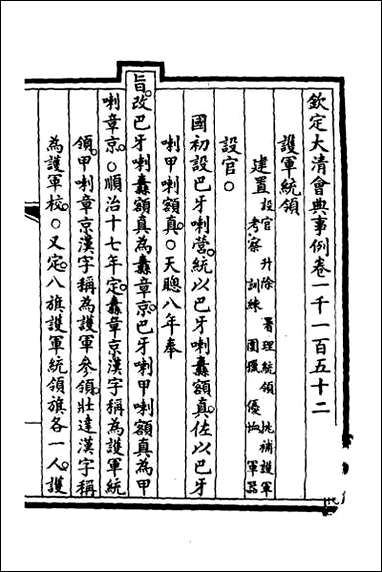 欽定大清會典事例卷一千一百五十二
護軍統領
建置設官 升除 署理統領 挑補護軍
考察 訓練 圍獵 優恤 軍器
設官○
國初設巴牙喇營。統以巴牙喇纛額真。佐以巴牙
喇甲喇額真。○天聰八年奉
旨。改巴牙喇纛額真為纛章京。巴牙喇甲喇額真為甲
喇章京。○順治十七年定。纛章京漢字稱為護軍統
領。甲喇章京漢字稱為護軍參領。壯達漢字稱
為護軍校。○又定。八旗護軍統領旗各一人。護